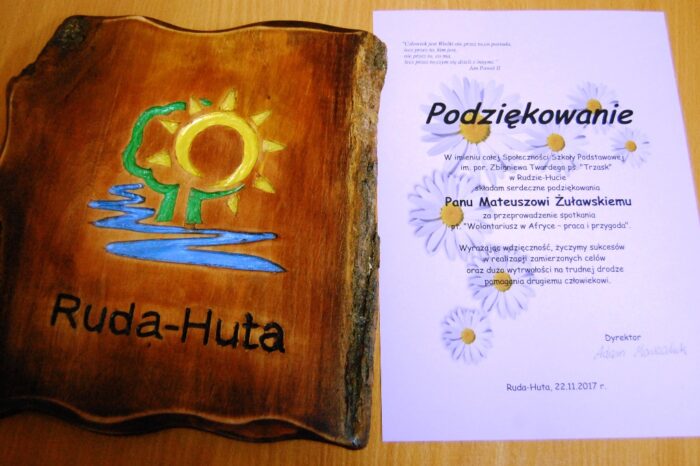 Ruda-Huta
"Człowiek jest Wielki nie przez to, co posiada,
lecz przez to, kim jest,
nie przez to, co ma,
lecz przez to, czym dzieli z innymi."
Jan Paweł II
Podziękowanie
W imieniu całej Społeczności Szkoły Podstawowej
im. por. Zbigniewa Twardego ps. "Trzask"
w Rudzie-Hucie
składam serdeczne podziękowania
Panu Mateuszowi Żuławskiemu
za przeprowadzenie spotkania
pt. "Wolontariusz w Afryce – praca i przygoda".
Wyrażając wdzięczność, życzymy sukcesów
w realizacji zamierzonych celów
oraz dużo wytrwałości na trudnej drodze
pomagania drugiemu człowiekowi.
Dyrektor
Ruda-Huta, 22.11.2017 r.